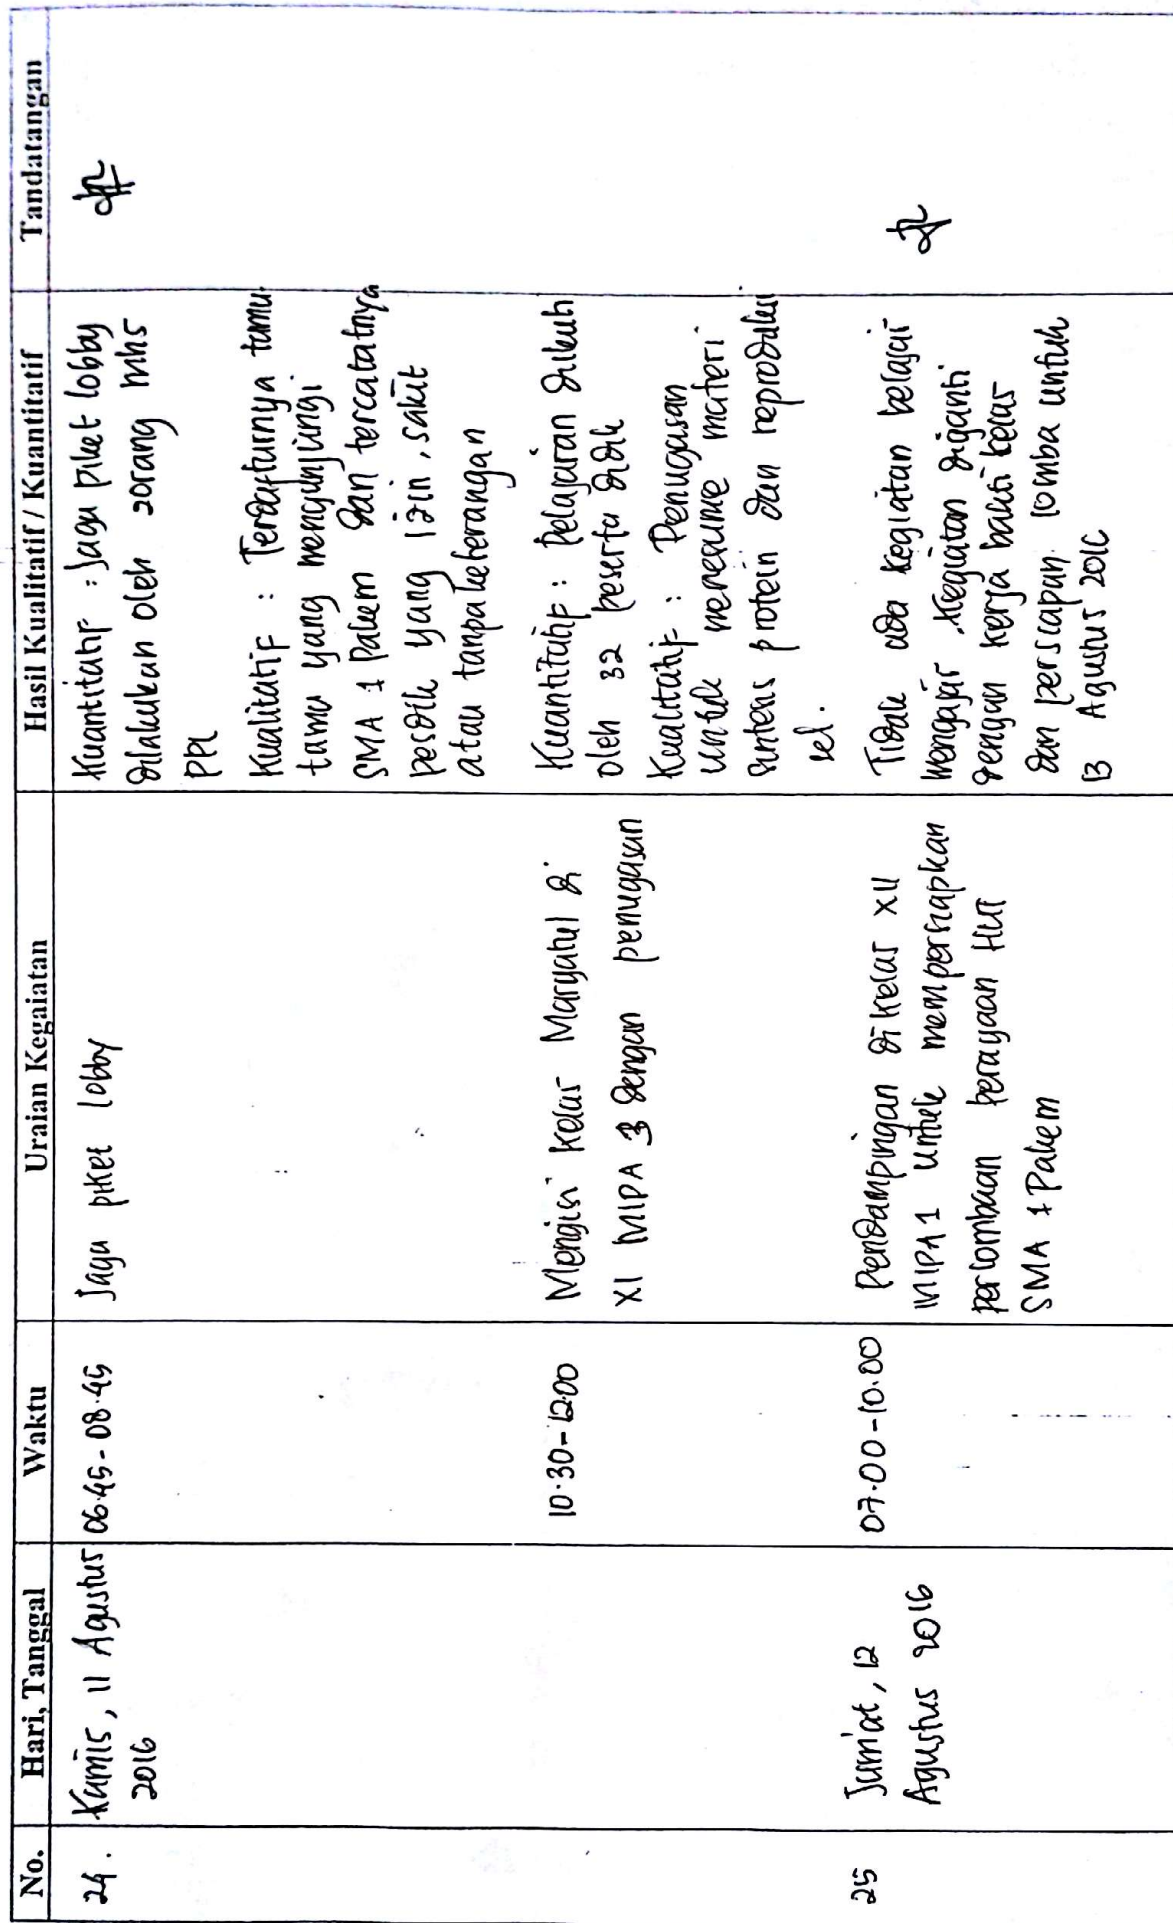 No. Hari, Tanggal Waktu Uraian Kegaiatan Hasil Kualitatif / Kuantitatif Tandatangan
24. Kamis, 11 Agustus
2016
06.45 - 08.45
Jaga piket lobby
Kuantitatif : Jaga piket lobby
dilakukan oleh 2orang mhs
PPL
Kualitatif : Terdaftarnya tamu
tamu yang mengunjungi
SMA 1 Pakem dan tercatatnya
pesdik yang izin, sakit
atau tanpa keterangan
10.30 - 12.00
Mengisi kelas Maryatul di
XI MIPA 3 dengan penugasan
Kuantitatif : Pelajaran diikuti
oleh 32 peserta didik
Kualitatif : Penugasan
untuk meresume materi
sintesis protein dan reproduksi
sel.
25 Jum'at, 12
Agustus 2016
07.00 - 10.00
Pendampingan di kelas XII
MIPA 1 untuk mempersiapkan
perlombaan perayaan HUT
SMA 1 Pakem
Tidak ada kegiatan belajar
mengajar, kegiatan diganti
dengan kerja bakti kelas
dan persiapan lomba untuk
13 Agustus 2016